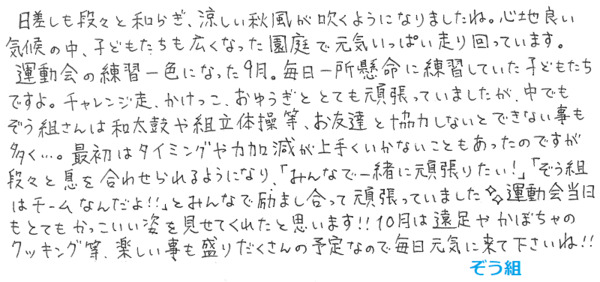 日差しも段々と和らぎ、涼しい秋風が吹くようになりましたね。心地良い
気候の中、子どもたちも広くなった園庭で元気いっぱい走り回っています。
運動会の練習一色になった9月。毎日一所懸命に練習していた子どもたち
ですよ。チャレンジ走、かけっこ、おゆうぎととても頑張っていましたが、中でも
ぞう組さんは和太鼓や組立体操等、お友達と協力しないとできない事も
多く…。最初はタイミングや力加減が上手くいかないこともあったのですが
段々と息を合わせられるようになり、「みんなで一緒に頑張りたい!」「ぞう組
はチームなんだよ!!」とみんなで励まし合って頑張っていました✧運動会当日
もとてもかっこいい姿を見せてくれたと思います!!10月は遠足やかぼちゃの
クッキング等、楽しい事も盛りだくさんの予定なので毎日元気に来て下さいね!!
ぞう組